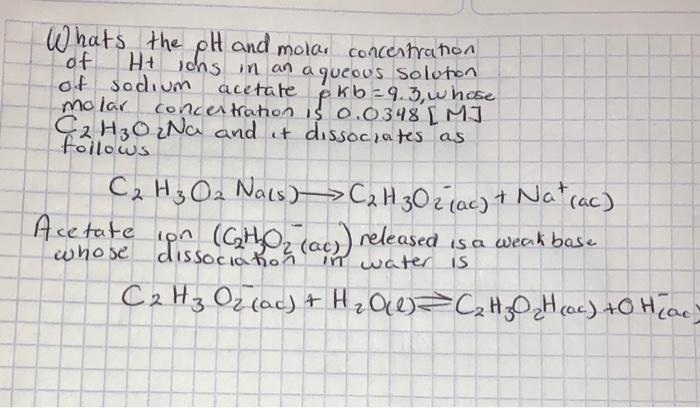 Whats the pH and molar concentration
of H+ ions in an aqueous soloton
of sodium acetate pkb=9.3, whose
molar concentration is 0.0348 [M]
C2H3O2Na and it dissociates as
follows
C2H3O2Na(s)⟶C2H3O2⁻(ac)+Na⁺(ac)
Acetate ion (C2H3O2⁻(ac)) released is a weak base
whose dissociation in water is
C2H3O2⁻(ac)+H2O(l)⇌C2H3O2H(ac)+OH⁻(ac)